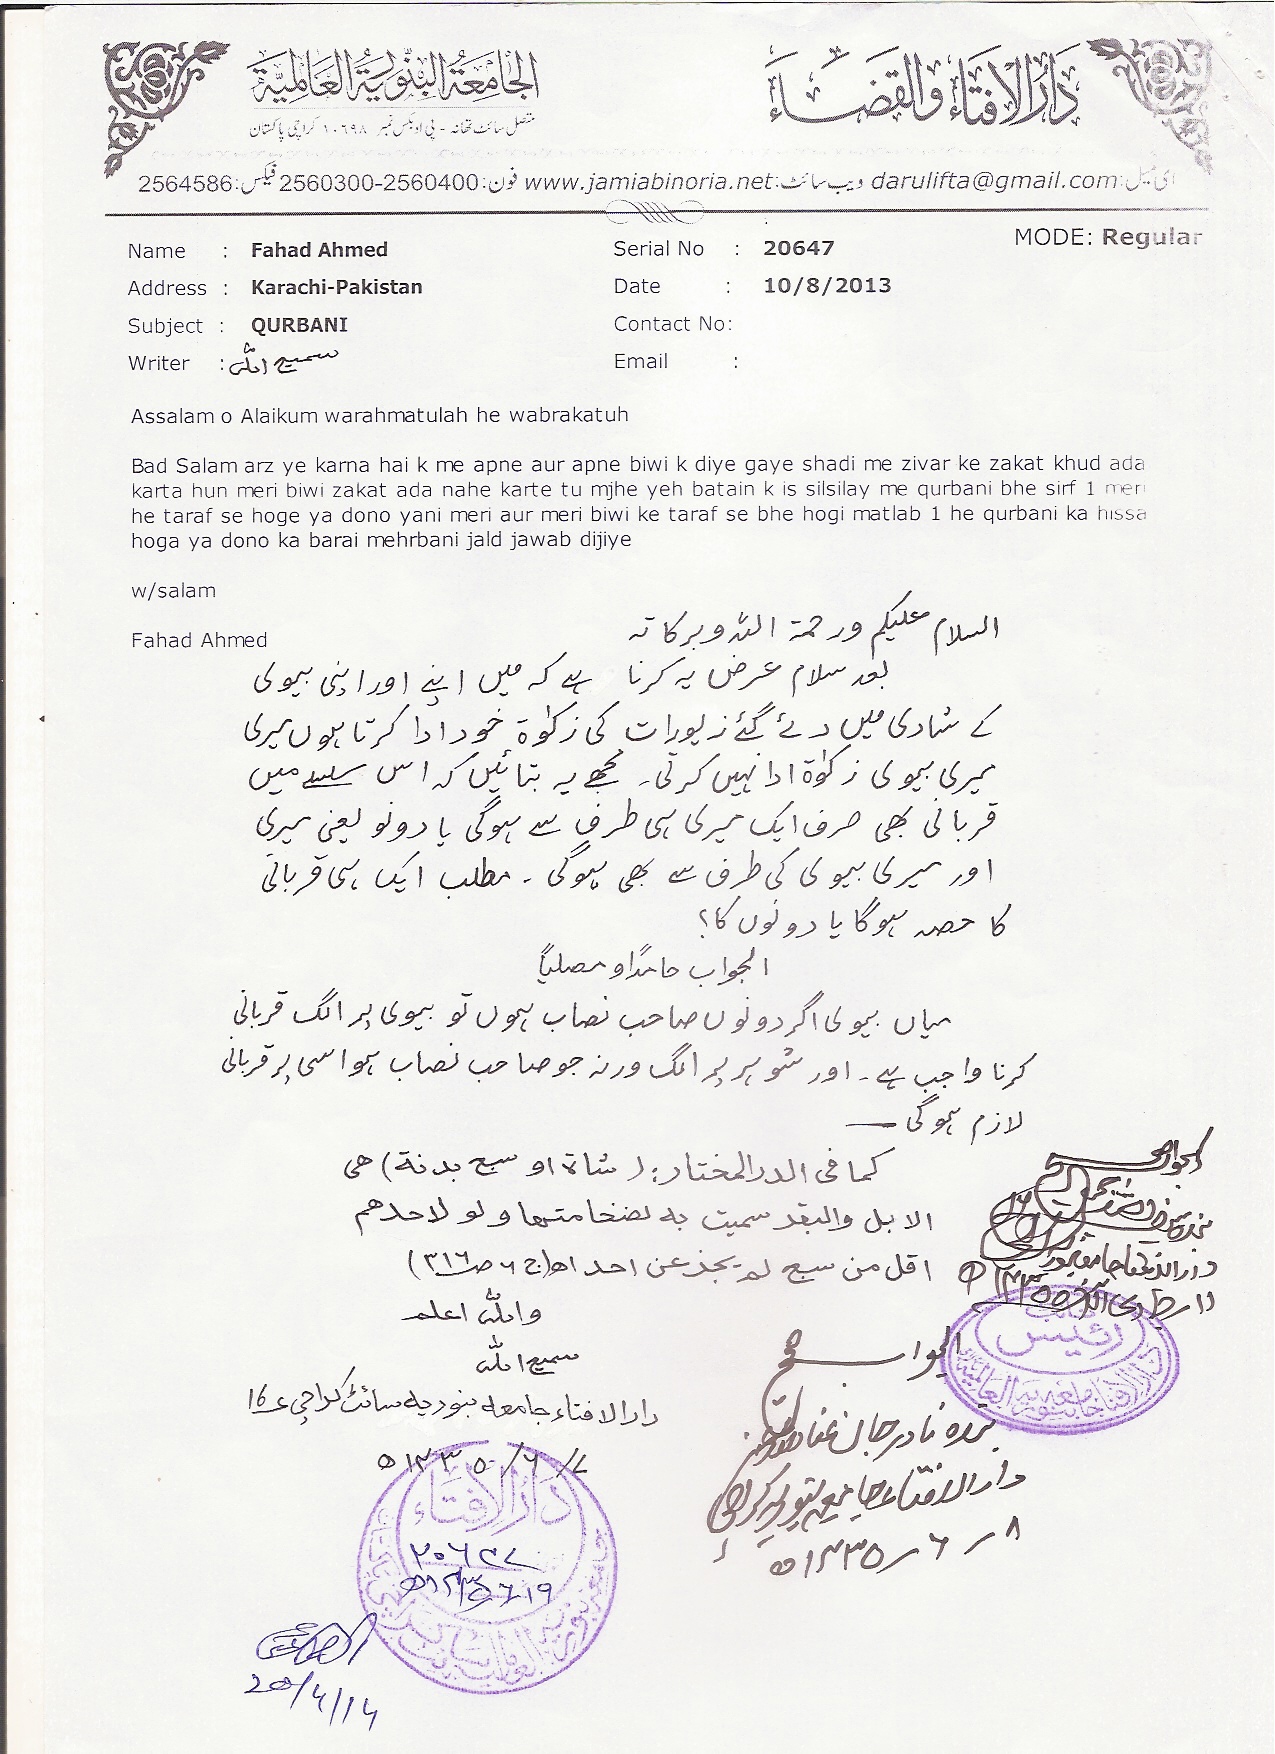 دار الافتاء والقضاء
الجامعة البنورية العالمية
متصل سائٹ تھانہ - پی او بکس نمبر ۱۰۶۹۸ کراچی پاکستان
ای میل: darulifta@gmail.com ویب سائٹ: www.jamiabinoria.net فون: 2560300-2560400 فیکس: 2564586
MODE: Regular
Name : Fahad Ahmed Serial No : 20647
Address : Karachi-Pakistan Date : 10/8/2013
Subject : QURBANI Contact No:
Writer : سمیع اللہ Email :
Assalam o Alaikum warahmatulah he wabrakatuh
Bad Salam arz ye karna hai k me apne aur apne biwi k diye gaye shadi me zivar ke zakat khud ada
karta hun meri biwi zakat ada nahe karte tu mjhe yeh batain k is silsilay me qurbani bhe sirf 1 meri
he taraf se hoge ya dono yani meri aur meri biwi ke taraf se bhe hogi matlab 1 he qurbani ka hissa
hoga ya dono ka barai mehrbani jald jawab dijiye
w/salam
Fahad Ahmed
السلام علیکم ورحمۃ اللہ وبرکاتہ
بعد سلام عرض یہ کرنا ہے کہ میں اپنے اور اپنی بیوی
کے شادی میں دئے گئے زیورات کی زکوٰۃ خود ادا کرتا ہوں میری
میری بیوی زکوٰۃ ادا نہیں کرتی۔ مجھے یہ بتائیں کہ اس سلسے میں
قربانی بھی صرف ایک میری ہی طرف سے ہوگی یا دونو یعنی میری
اور میری بیوی کی طرف سے بھی ہوگی ۔ مطلب ایک ہی قربانی
کا حصہ ہوگا یا دونوں کا؟
الجواب حامدًا ومصلیاً
میاں بیوی اگر دونوں صاحب نصاب ہوں تو بیوی پر الگ قربانی
کرنا واجب ہے۔ اور شوہر پر الگ ورنہ جو صاحب نصاب ہو اسی پر قربانی
لازم ہوگی —
کما فی الدر المختار: (شاة او سبع بدنة) هی
الابل والبقر سمیت به لضخامتها ولو لاحدهم
اقل من سبع لم یجز عن احد اھ (ج ۶ ص ۳۱۶)
واللہ اعلم
سمیع اللہ
دارالافتاء جامعہ بنوریہ سائٹ کراچی ۱۶
۷/۶/۱۴۳۵ھ
الجواب صحیح
دارالافتاء جامعہ بنوریہ
رئیس
الجواب صحیح
بندہ نادر جان
دارالافتاء جامعہ بنوریہ کراچی
۸-۶-۱۴۳۵ھ
دارالافتاء
۲۰۶۴۷
20/4/14